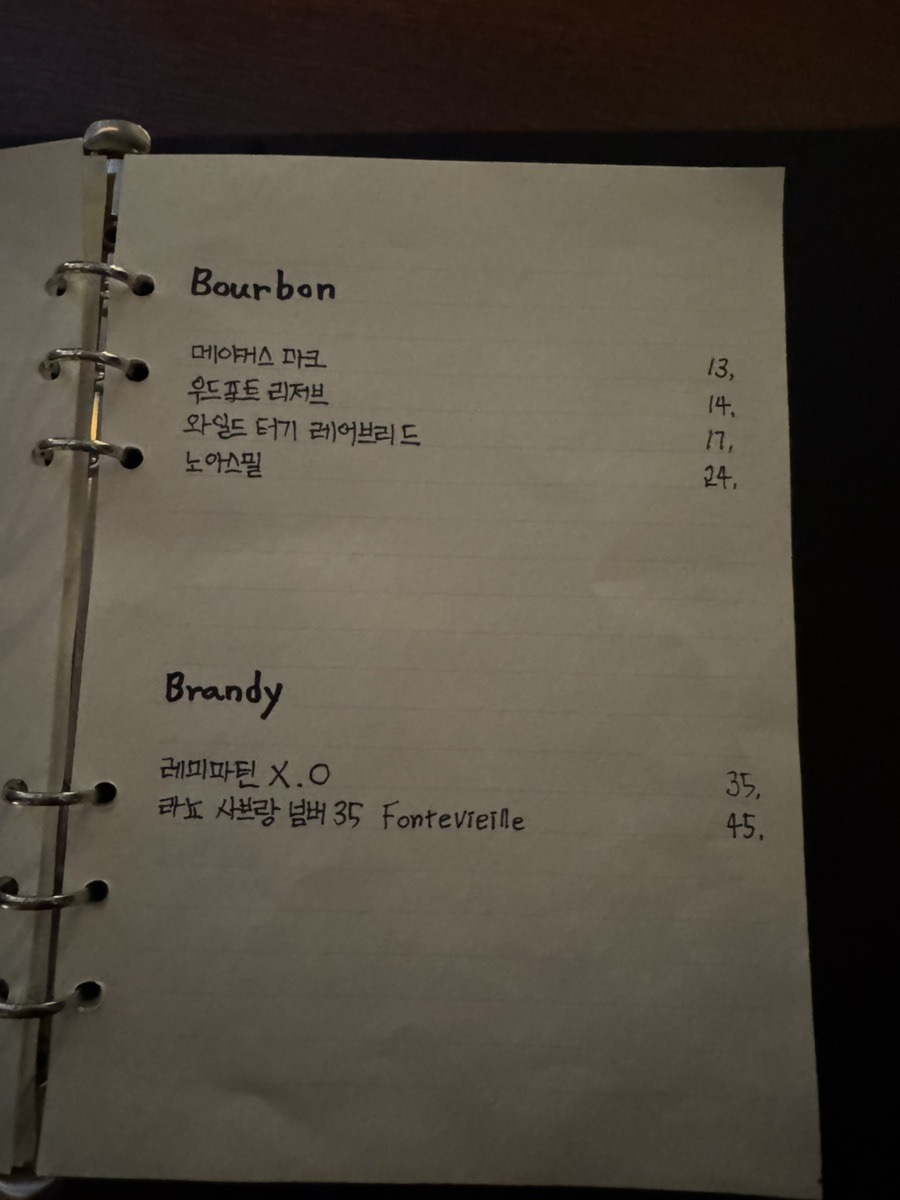 Bourbon
메이커스 마크 13,
우드포트 리저브 14,
와일드 터키 레어브리드 17,
노아스밀 24,
Brandy
레미마틴 X.O 35,
라뇨 사브랑 넘버 35 Fontevieille 45,